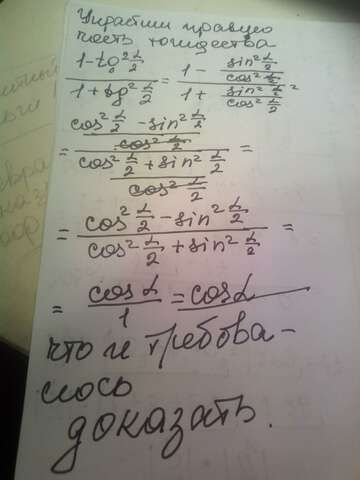 Упростим правую
часть тождества
(1-tg²α/2)/(1+tg²α/2) = (1 - (sin²α/2)/(cos²α/2))/(1 + (sin²α/2)/(cos²α/2)) =
= ((cos²α/2 - sin²α/2)/(cos²α/2))/((cos²α/2 + sin²α/2)/(cos²α/2)) =
= (cos²α/2 - sin²α/2)/(cos²α/2 + sin²α/2) =
= cosα/1 = cosα
что и требова-
лось
доказать.